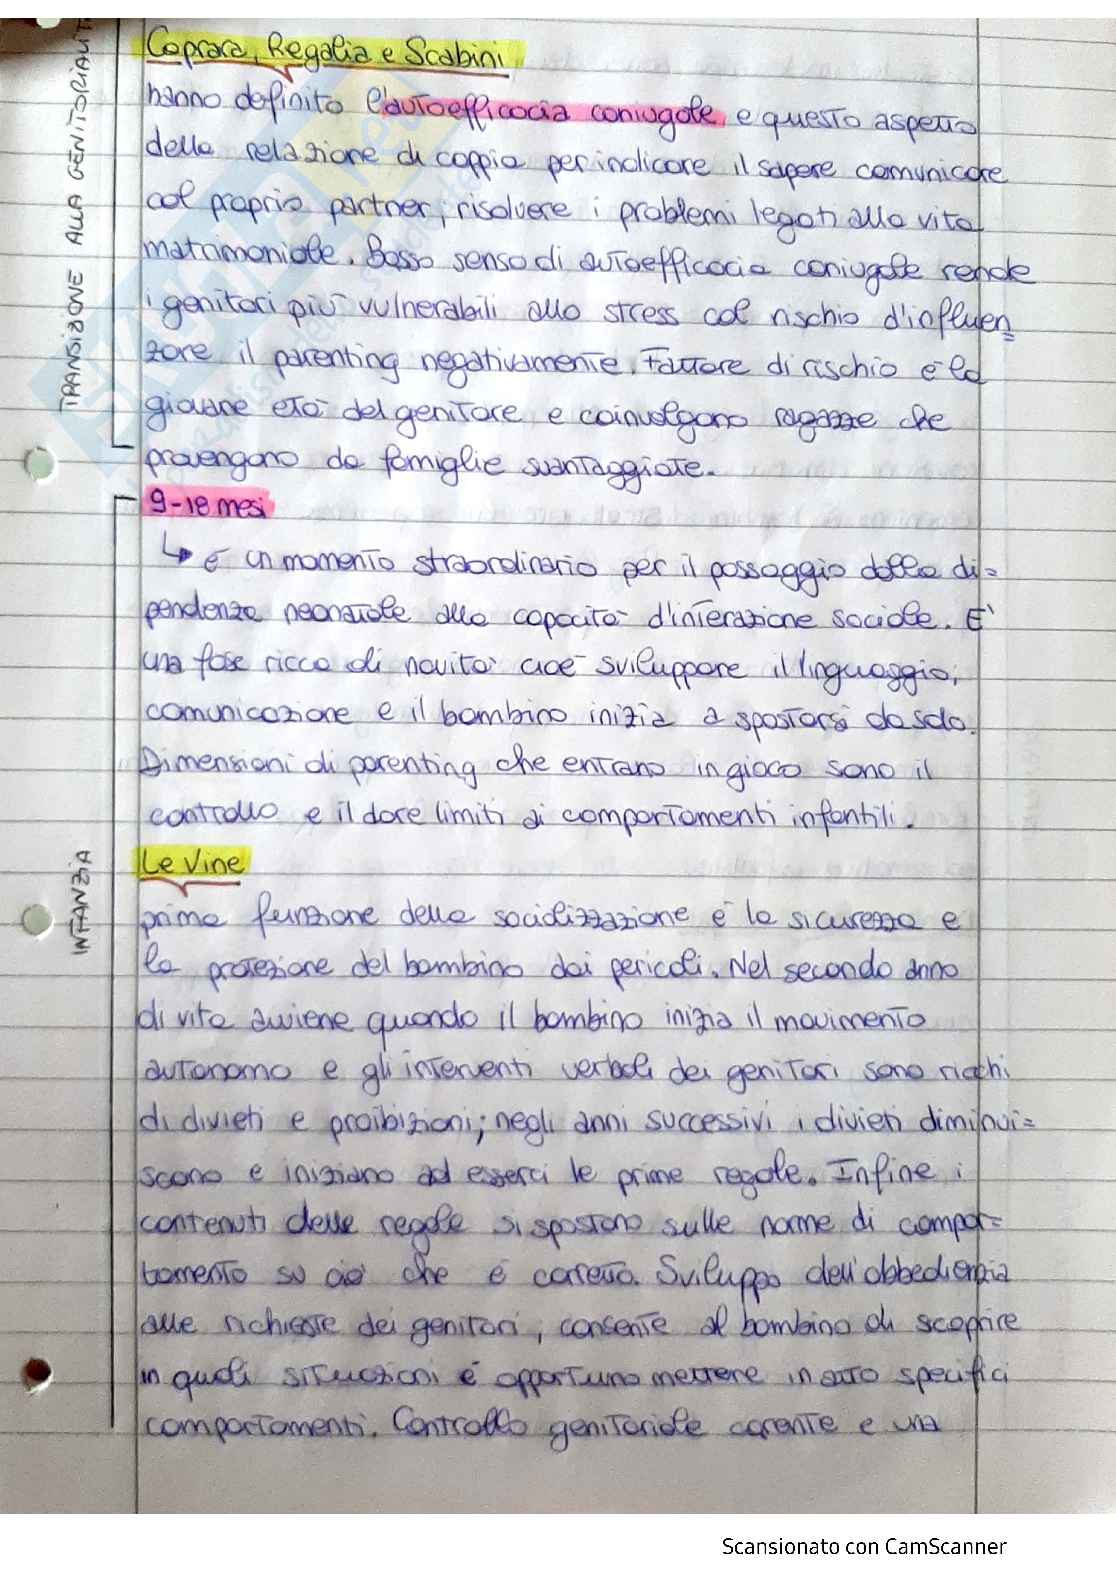 TRANSIZIONE ALLA GENITORIALIT
Caprara, Regalia e Scabini
hanno definito l'autoefficacia coniugale, e questo aspetto
della relazione di coppia per indicare il sapere comunicare
col proprio partner, risolvere i problemi legati alla vita
matrimoniale. Basso senso di autoefficacia coniugale rende
i genitori più vulnerabili allo stress col rischio d'influen=
zare il parenting negativamente. Fattore di rischio è la
giovane età del genitore e coinvolgono ragazze che
provengono da famiglie svantaggiate.
9-18 mesi
↳ è un momento straordinario per il passaggio dalla di=
pendenza neonatale alla capacità d'interazione sociale. E'
una fase ricca di novità cioè sviluppare il linguaggio,
comunicazione e il bambino inizia a spostarsi da solo.
Dimensioni di parenting che entrano in gioco sono il
controllo e il dare limiti ai comportamenti infantili.
INFANZIA
Le Vine
prima funzione della socializzazione è la sicurezza e
la protezione del bambino dai pericoli. Nel secondo anno
di vita avviene quando il bambino inizia il movimento
autonomo e gli interventi verbali dei genitori sono ricchi
di divieti e proibizioni; negli anni successivi i divieti diminui=
scono e iniziano ad esserci le prime regole. Infine i
contenuti delle regole si spostano sulle norme di compor=
tamento su ciò che è corretto. Sviluppo dell'obbedienzia
alle richieste dei genitori, consente al bambino di scoprire
in quali situazioni è opportuno mettere in atto specifici
comportamenti. Controllo genitoriale carente e una
Scansionato con CamScanner